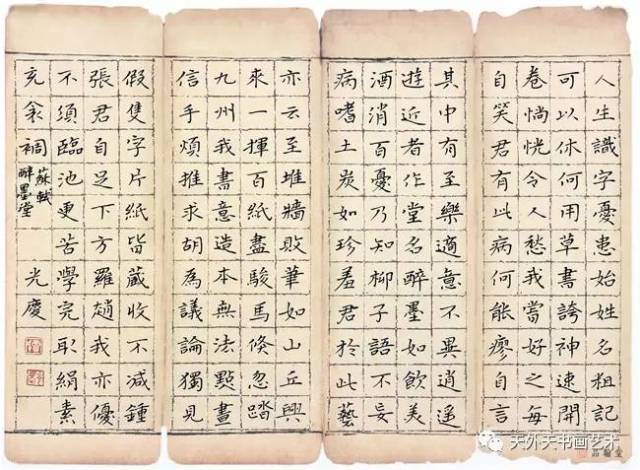 人生識字憂患始姓名粗記
可以休何用草書誇神速開
卷惝恍令人愁我嘗好之每
自笑君有此病何能瘳自言
其中有至樂適意不異逍遙
遊近者作堂名醉墨如飲美
酒消百憂乃知柳子語不妄
病嗜土炭如珍羞君於此藝
亦云至堆牆敗筆如山丘興
來一揮百紙盡駿馬倏忽踏
九州我書意造本無法點畫
信手煩推求胡為議論獨見
假隻字片紙皆藏收不減鍾
張君自足下方羅趙我亦優
不須臨池更苦學完取絹素
充衾裯
蘇軾
醉墨堂
光慶
天外天书画艺术